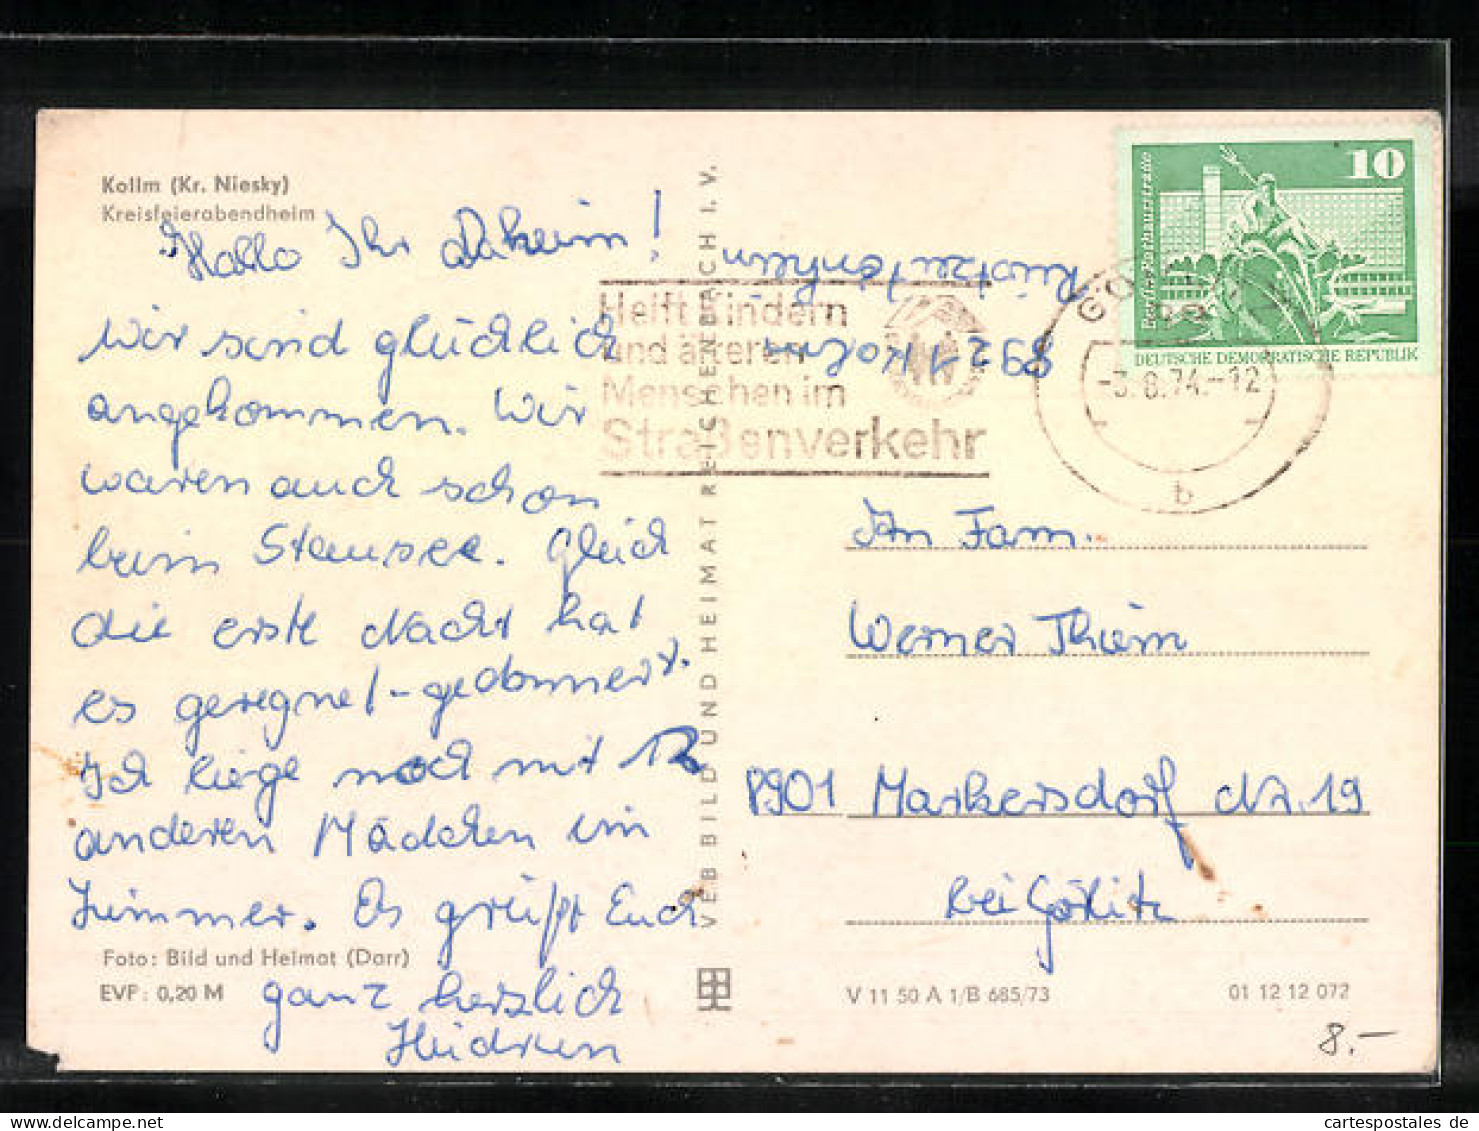 Kollm (Kr. Niesky)
Kreisfeierabendheim
Hallo Ihr Daheim!
Wir sind glücklich
angekommen. Wir
waren auch schon
beim Stausee. Gleich
die erste Nacht hat
es geregnet - gedonnert.
Ich liege noch mit 12
anderen Mädchen im
Zimmer. Es grüßt Euch
ganz herzlich
Foto: Bild und Heimat (Darr)
EVP: 0,20 M
VEB BILD UND HEIMAT REICHENBACH I. V.
8921
Helft Kindern
und älteren
Menschen im
Straßenverkehr
10
DEUTSCHE DEMOKRATISCHE REPUBLIK
-3.8.74.-12
b
An Fam.
Werner Thiem
8901 Markersdorf Nr. 19
bei Görlitz
V 11 50 A 1/B 685/73
01 12 12 072
8.-
cartespostales.de